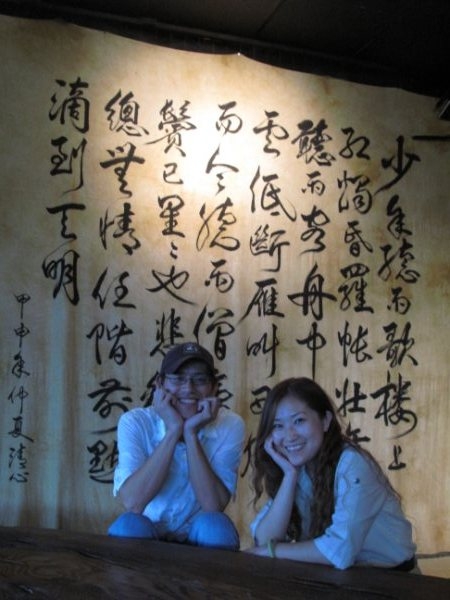 少年聽雨歌樓上
紅燭昏羅帳壯年
聽雨客舟中
雲低斷雁叫西
而今聽雨僧
鬢已星〻也悲
總無情任階前點
滴到天明
甲申年仲夏清心